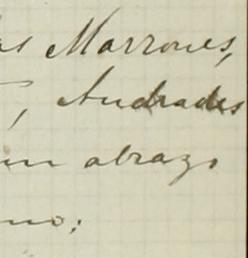 as Marrones,
, Andrades
un abrazo
no;